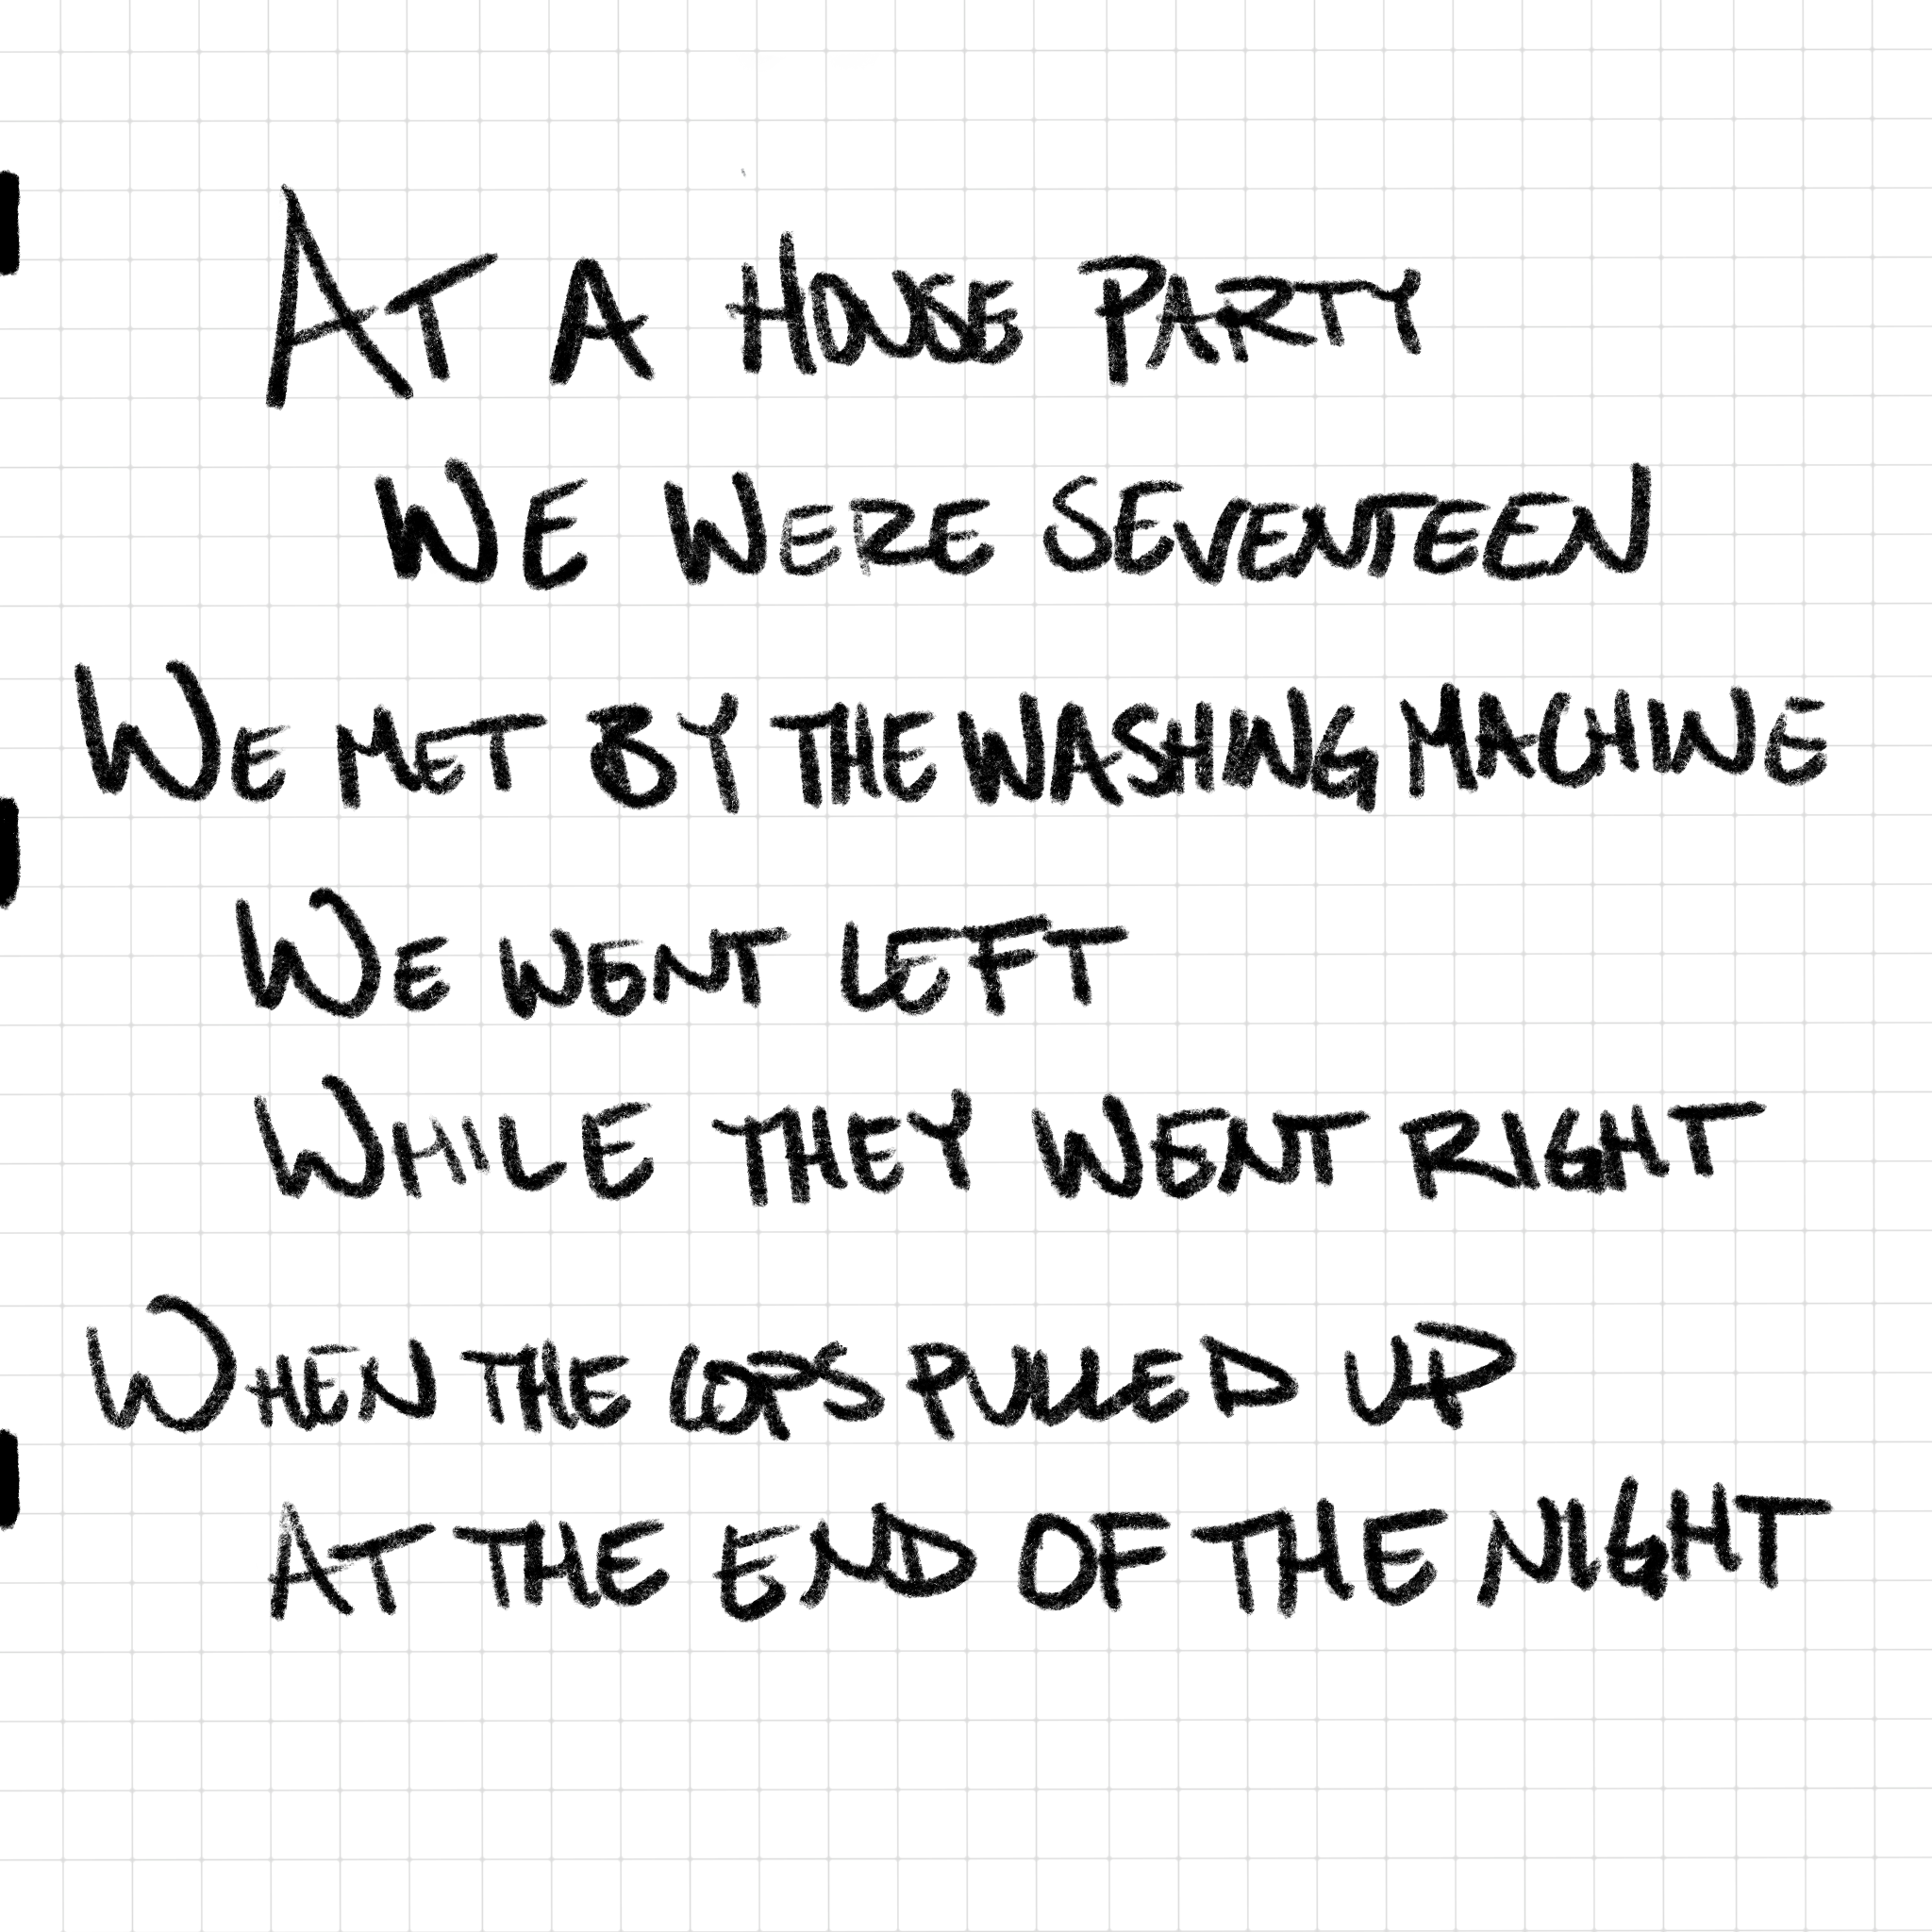 At a House Party
We Were Seventeen
We met by the washing machine
We went left
While they went right
When the cops pulled up
At the end of the night